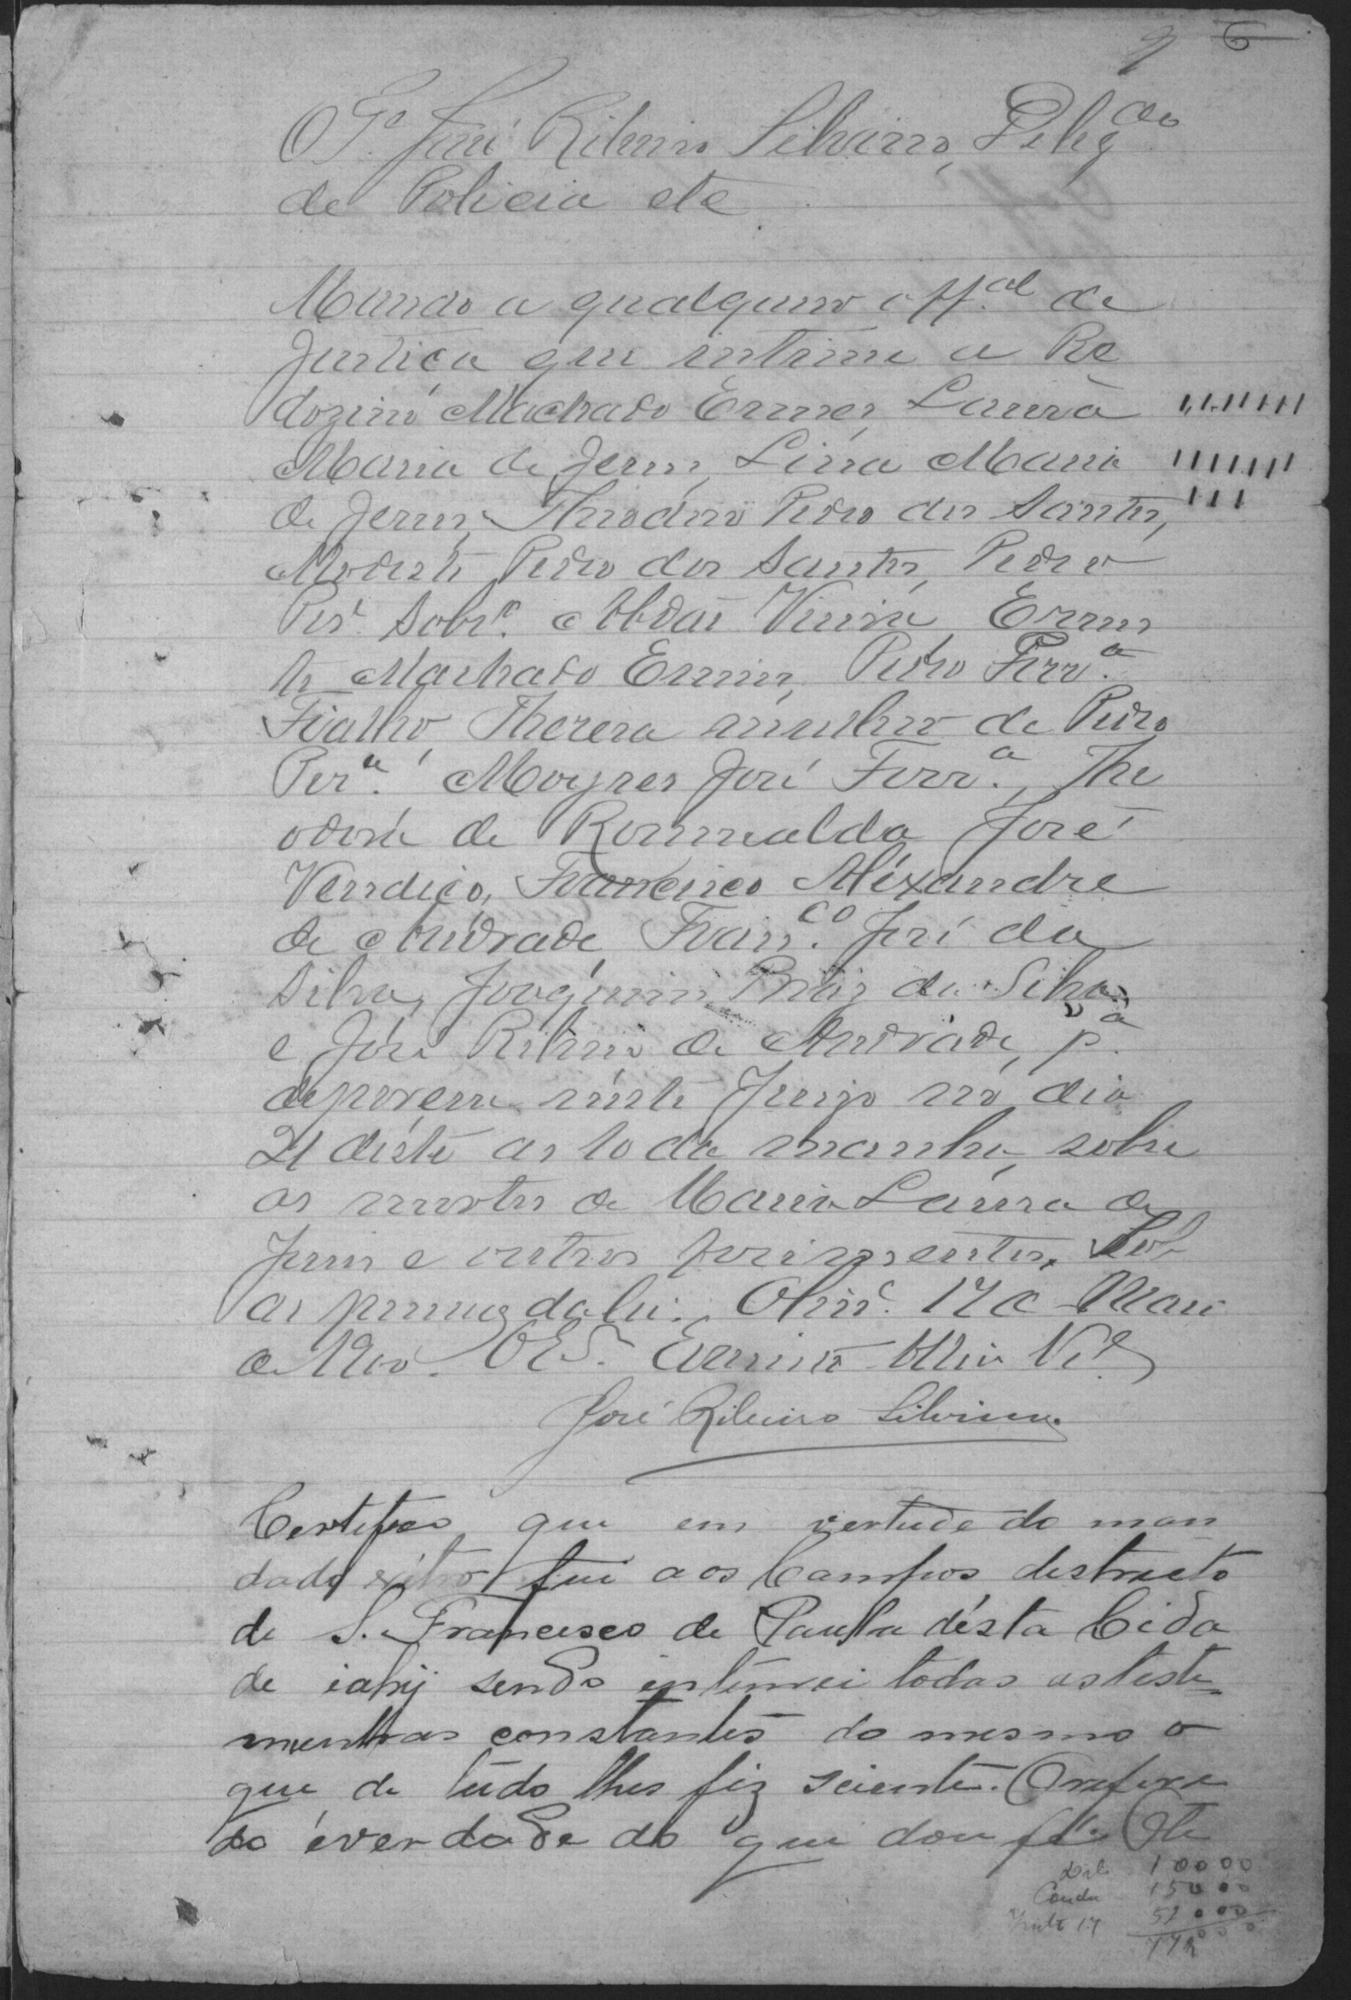 9 6
O Te José Ribeiro Silverio, Delegdo
de Policia etc
Mando a qualquer offal de
Justiça que intime a Re
dozino Machado Ermes, Laura
Maria de Jesus, Lina Maria
de Jesus, Theodoro Pedro dos Santos,
Modesto Pedro dos Santos, Pedro
Per. Sobr. Abdai Vieira, Ernes
to Machado Ermes, Pedro Ferra
Fialho, Thereza mulher de Pedro
Pera. Moyses José Ferra., The
odora de Romualda José
Verediço, Francisco Alexandre
de Andrade, Franco. José da
Silva, Joaquim Braz da Silva
e José Ribeiro de Andrade, pa.
deporem neste Juizo no dia
21 deste as 10 da manhã, sobre
as mortes de Maria Laura de
Jesus e outros ferimentos. Sob
as penas da lei. 17 de Maio
de 1910. O Es.
José Ribeiro Silverio
Certifico que em vertude do man
dado fui aos Campos destricto
de S. Francisco de Paula désta Cida
de e ahy sendo intimei todas as teste=
munhas constantes do mesmo o
que de tudo lhes fiz sciente. O refere
do é verdade do que dou fé.
Dil. 10000
Condu 15000
17 52000
77000